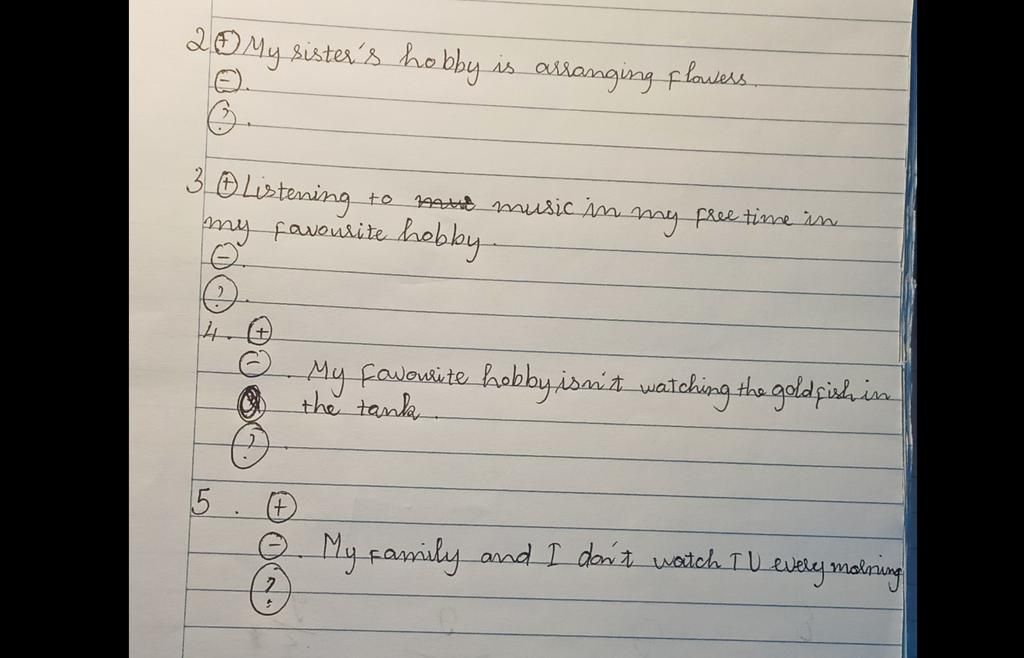 2 (+) My sister's hobby is arranging flowers.
(-).
(?).
3 (+) Listening to music in my free time in
my favourite hobby.
(-).
(?).
4. (+)
(-). My favourite hobby isn't watching the goldfish in
the tank.
(?).
5. (+)
(-). My family and I don't watch TV every morning
(?)